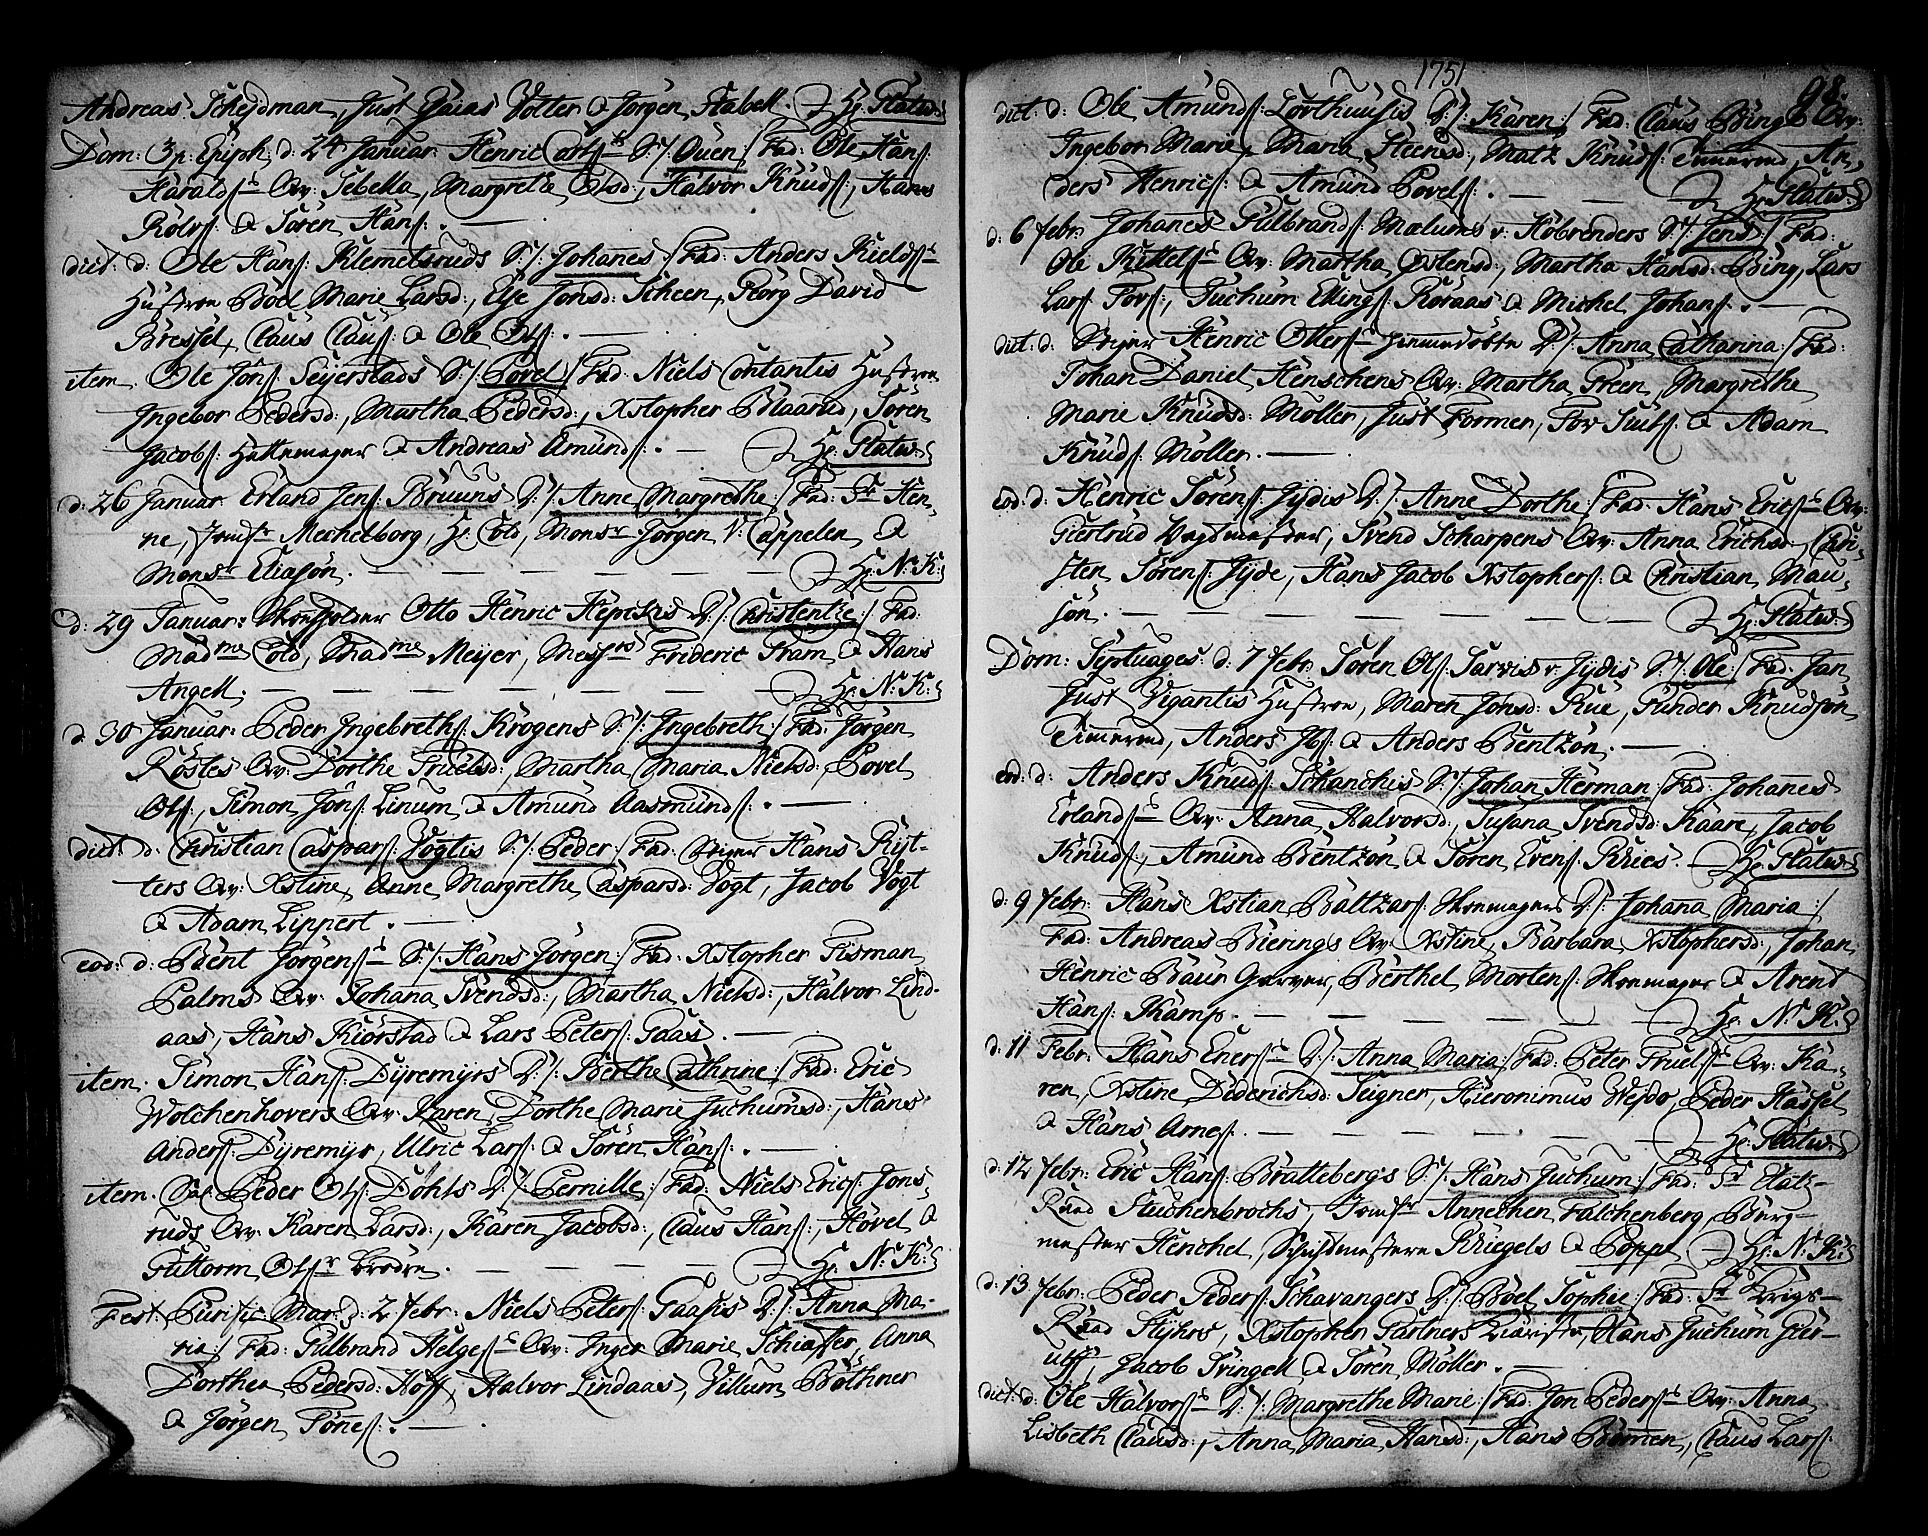 Andreas Schejdman, Just Gaias Votter & Jørgen Stabell. Hr. Platou:
Dom: 3 p. Epiph. d: 24 Januar Henric Carls S:/: Ouen :/ Fad: Ole Hans:
Haralds Qv: Sebella, Margrethe Olsd:, Halvor Knuds:, Hans
Rolvs: & Søren Hans: .
dict: d: Ole Hans: Klemetsruds S:/: Johanes :/ Fad: Anders Kields
Hustroe Boel Marie Larsd:, Else Jonsd: Scheen, Børg David
Bressel, Claus Claus: & Ole Ols: .
item. Ole Jons: Sejerstads S:/: Povel :/ Fad: Niels Contantis Hustroe
Ingebor Pedersd:, Martha Pedersd:, Xstopher Blaarud, Søren
Jacobs: Hattemager & Andreas Amunds: . Hr. Platou:
d: 26 Januar Erland Jens: Bruuns D:/: Anne Margrethe :/ Fad: Fr. Hen-
ne, Jomfr Mechelborg, Hr. Cold, Monsr Jørgen V: Cappelen, &
Monsr Eliasøn. Hr. N: K:
d: 29 Januar: Otto Henric D:/: Christentze :/ Fad:
Madme Cold, Madme Meyer, Messrs Frideric Fram, & Hans
Angell. Hr. N: K:
d: 30 Januar: Peder Ingebreths: Krogens S:/: Ingebreth :/ Fad: Jørgen
Røstes Qv: Dorthe Truelsd:, Martha Maria Nielsd:, Povel
Ols:, Simon Jøns: Linum, & Amund Aasmunds: .
dict: d: Christian Caspars: Vogtis S:/: Peder :/ Fad: Hans Ryt-
ters Qv: Xstine, Anne Margrethe Caspersd: Vogt, Jacob Vogt
& Adam Lippert .
eod: d: Bent Jørgens S:/: Hans Jørgen :/ Fad: Xstopher Fisman
Palms Qv: Johana Svendsd:, Martha Nielsd:, Halvor Lind-
aas, Hans Kiørstad & Lars Peters: Gaas.
item. Simon Hans: Dyremyrs D:/: Berthe Cathrine :/ Fad: Eric
Wolchenhovers Qv: Karen, Dorthe Marie Juchumsd:, Hans
Anders: Dyremyr, Ulric Lars: & Søren Hans: .
item. Sal. Peder Ols: Dohls D:/: Pernille :/ Fad: Niels Erics: Jons-
ruds Qv: Karen Larsd:, Karen Jacobsd:, Claus Hans:, Hovel &
Guttorm Ols Brødre. Hr. N: K:
Fest: Purific: Mar: d: 2 febr: Niels Peters: Gaasis D:/: Anna Ma-
ria :/ Fad: Gulbrand Helges Qv: Inger Marie Schiøtter, Anna
Dorthea Pedersd: Hoff, Halvor Lindaas, Villum Bøthner
& Jørgen Tønes: .
1751
98.
dict: d: Ole Amunds: Lorthuusis D:/: Karen :/ Fad: Claus Bings Qv:
Ingebor Marie, Maria Steensd:, Matz Knuds: Timermd, An-
ders Henrics: & Amund Povels: . Hr. Platou:
d: 6 febr: Johanes Gulbrands: Mælums v: Hobrenders S:/: Jens :/ Fad:
Ole Kittels Qv: Martha Ostensd:, Martha Hansd: Bing, Lars
Lars: Fors:, Juchum Ellings: Roraas & Michel Johans: .
dict: d: Henric Otters D:/: Anna Catharina :/ Fad:
Johan Daniel Henschens Qv: Martha Preen, Margrethe
Marie Knudsd: Møller, Just Former, Por & Adam
Knuds: Møller .
eod: d: Henric Sørens: Jydis D:/: Anne Dorthe :/ Fad: Hans Erics Qv:
Giertrud Svend Scharpens Qv: Anna Erichsd:, Chri-
sten Sørens: Jyde, Hans Jacob Xstophers: & Christian Mau-
søn. Hr. Platou:
Dom: Septuages: d: 7 febr: Søren Ols: Sarvis v: Jydis S:/: Ole :/ Fad: Jan
Just Vigantis Hustroe, Maren Jonsd: Rue, Gunder Knudsøn
Timermd, Anders Jbs: & Anders Bentzøn.
eod: d: Anders Knuds: Schanchis S:/: Johan Herman :/ Fad: Johanes
Erlands Qv: Anna Halvorsd:, Susana Svendsd: Kaare, Jacob
Knuds:, Amund Bentzøn & Søren Evens: Ries. Hr. Platou:
d: 9 febr: Hans Xstian Baltzars: Skoemagers D:/: Johana Maria :/
Fad: Andreas Bierings Qv: Xstine, Barbara Xstophersd:, Johan
Henric Baur Garver, Berthel Mortens: Skoemager & Arent
Hans: Kamp. Hr. N: K:
d: 11 Febr: Hans Eners D:/: Anna Maria :/ Fad: Peter Truels Qv: Ka-
ren, Xstine Dederichsd: Seigner, Hieronimus Wesdo, Peder Hassel
& Hans Arnes: . Hr. Platou:
d: 12 febr: Eric Hans: Brattebergs S:/: Hans Juchum :/ Fad: Fr Etatz-
Raad Stuchenbrochs, Jomfr Annechen Falchenberg, Burg-
mester Henchel, Schichtmestere Kriegels & Poppe Hr. N: K:
d: 13 febr: Peder Peders: Schavangers D:/: Boel Sophie :/ Fad: Fr Krigs-
Raad Flyhrs, Xstopher Gartners Hans Juchum Gier-
ulff, Jacob Svingell & Søren Møller .
dict: d: Ole Halvors D:/: Margrethe Marie :/ Fad: Jon Peders Qv: Anna
Lisbeth Clausd:, Anna Maria Hansd:, Hans Børnen, Claus Lars: